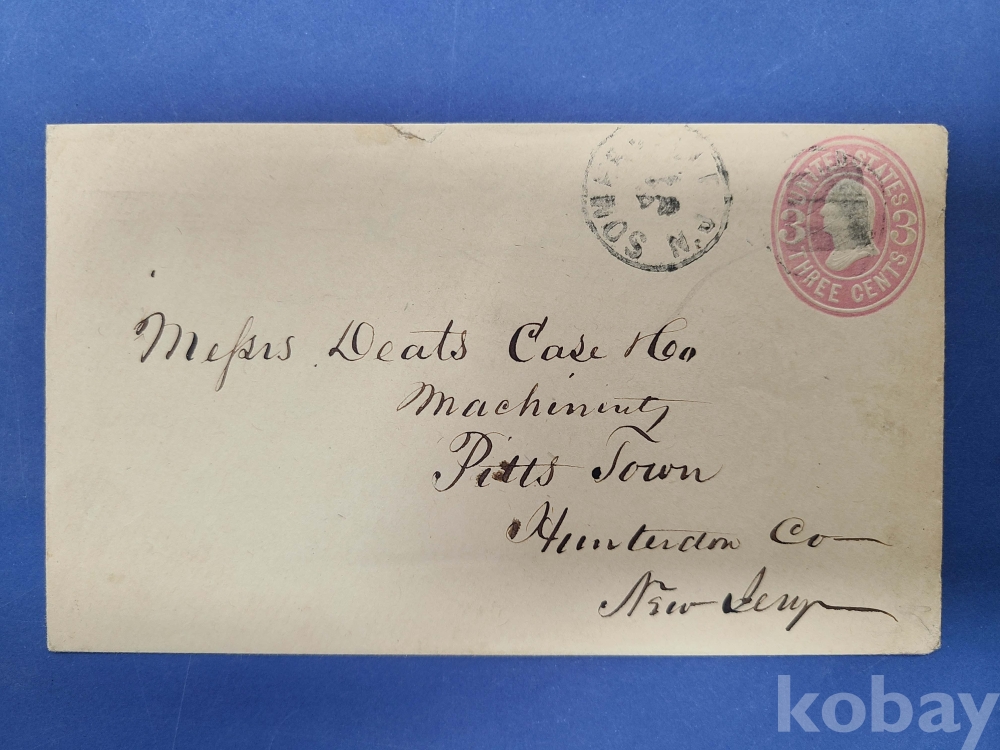 UNITED STATES
3 3
THREE CENTS
Messrs Deats Case & Co
Machinists
Pitts Town
Hunterdon Co
New Jersy
kobay